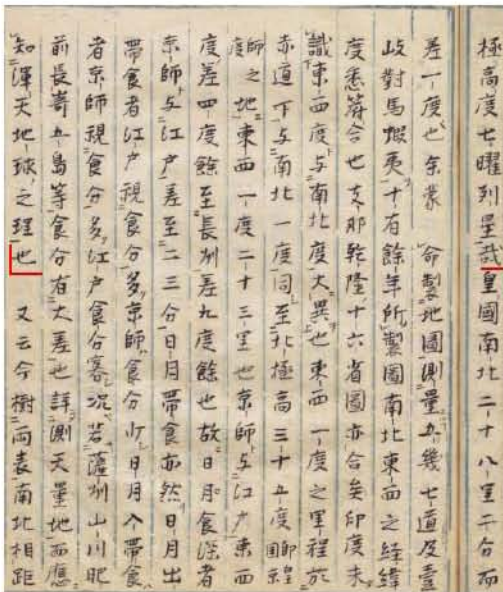 極高度七曜列星哉皇國南北二十八里二分而
差一度也余蒙 命製地圖測量五幾七道及壹
岐對馬蝦夷十有餘年所製圖南北東西之経緯
度悉符合也支那乾隆十六省圖亦合矣印度未
識東西度与南北度大異也東西一度之里程於
赤道下与南北一度同至北極高三十五度即京
師之地東西一度二十三里也京師与江戸東西
度差四度餘至長州差九度餘也故日月食深者
京師与江戸差至二三分日月帯食亦然日月出
帯食者江戸視食分多京師食分少日月入帯食
者京師視食分多江戸食分寡況若薩州山川肥
前長崎五島等食分有大差也詳測天量地而應
知渾天地球之理也 又云今樹両表南北相距